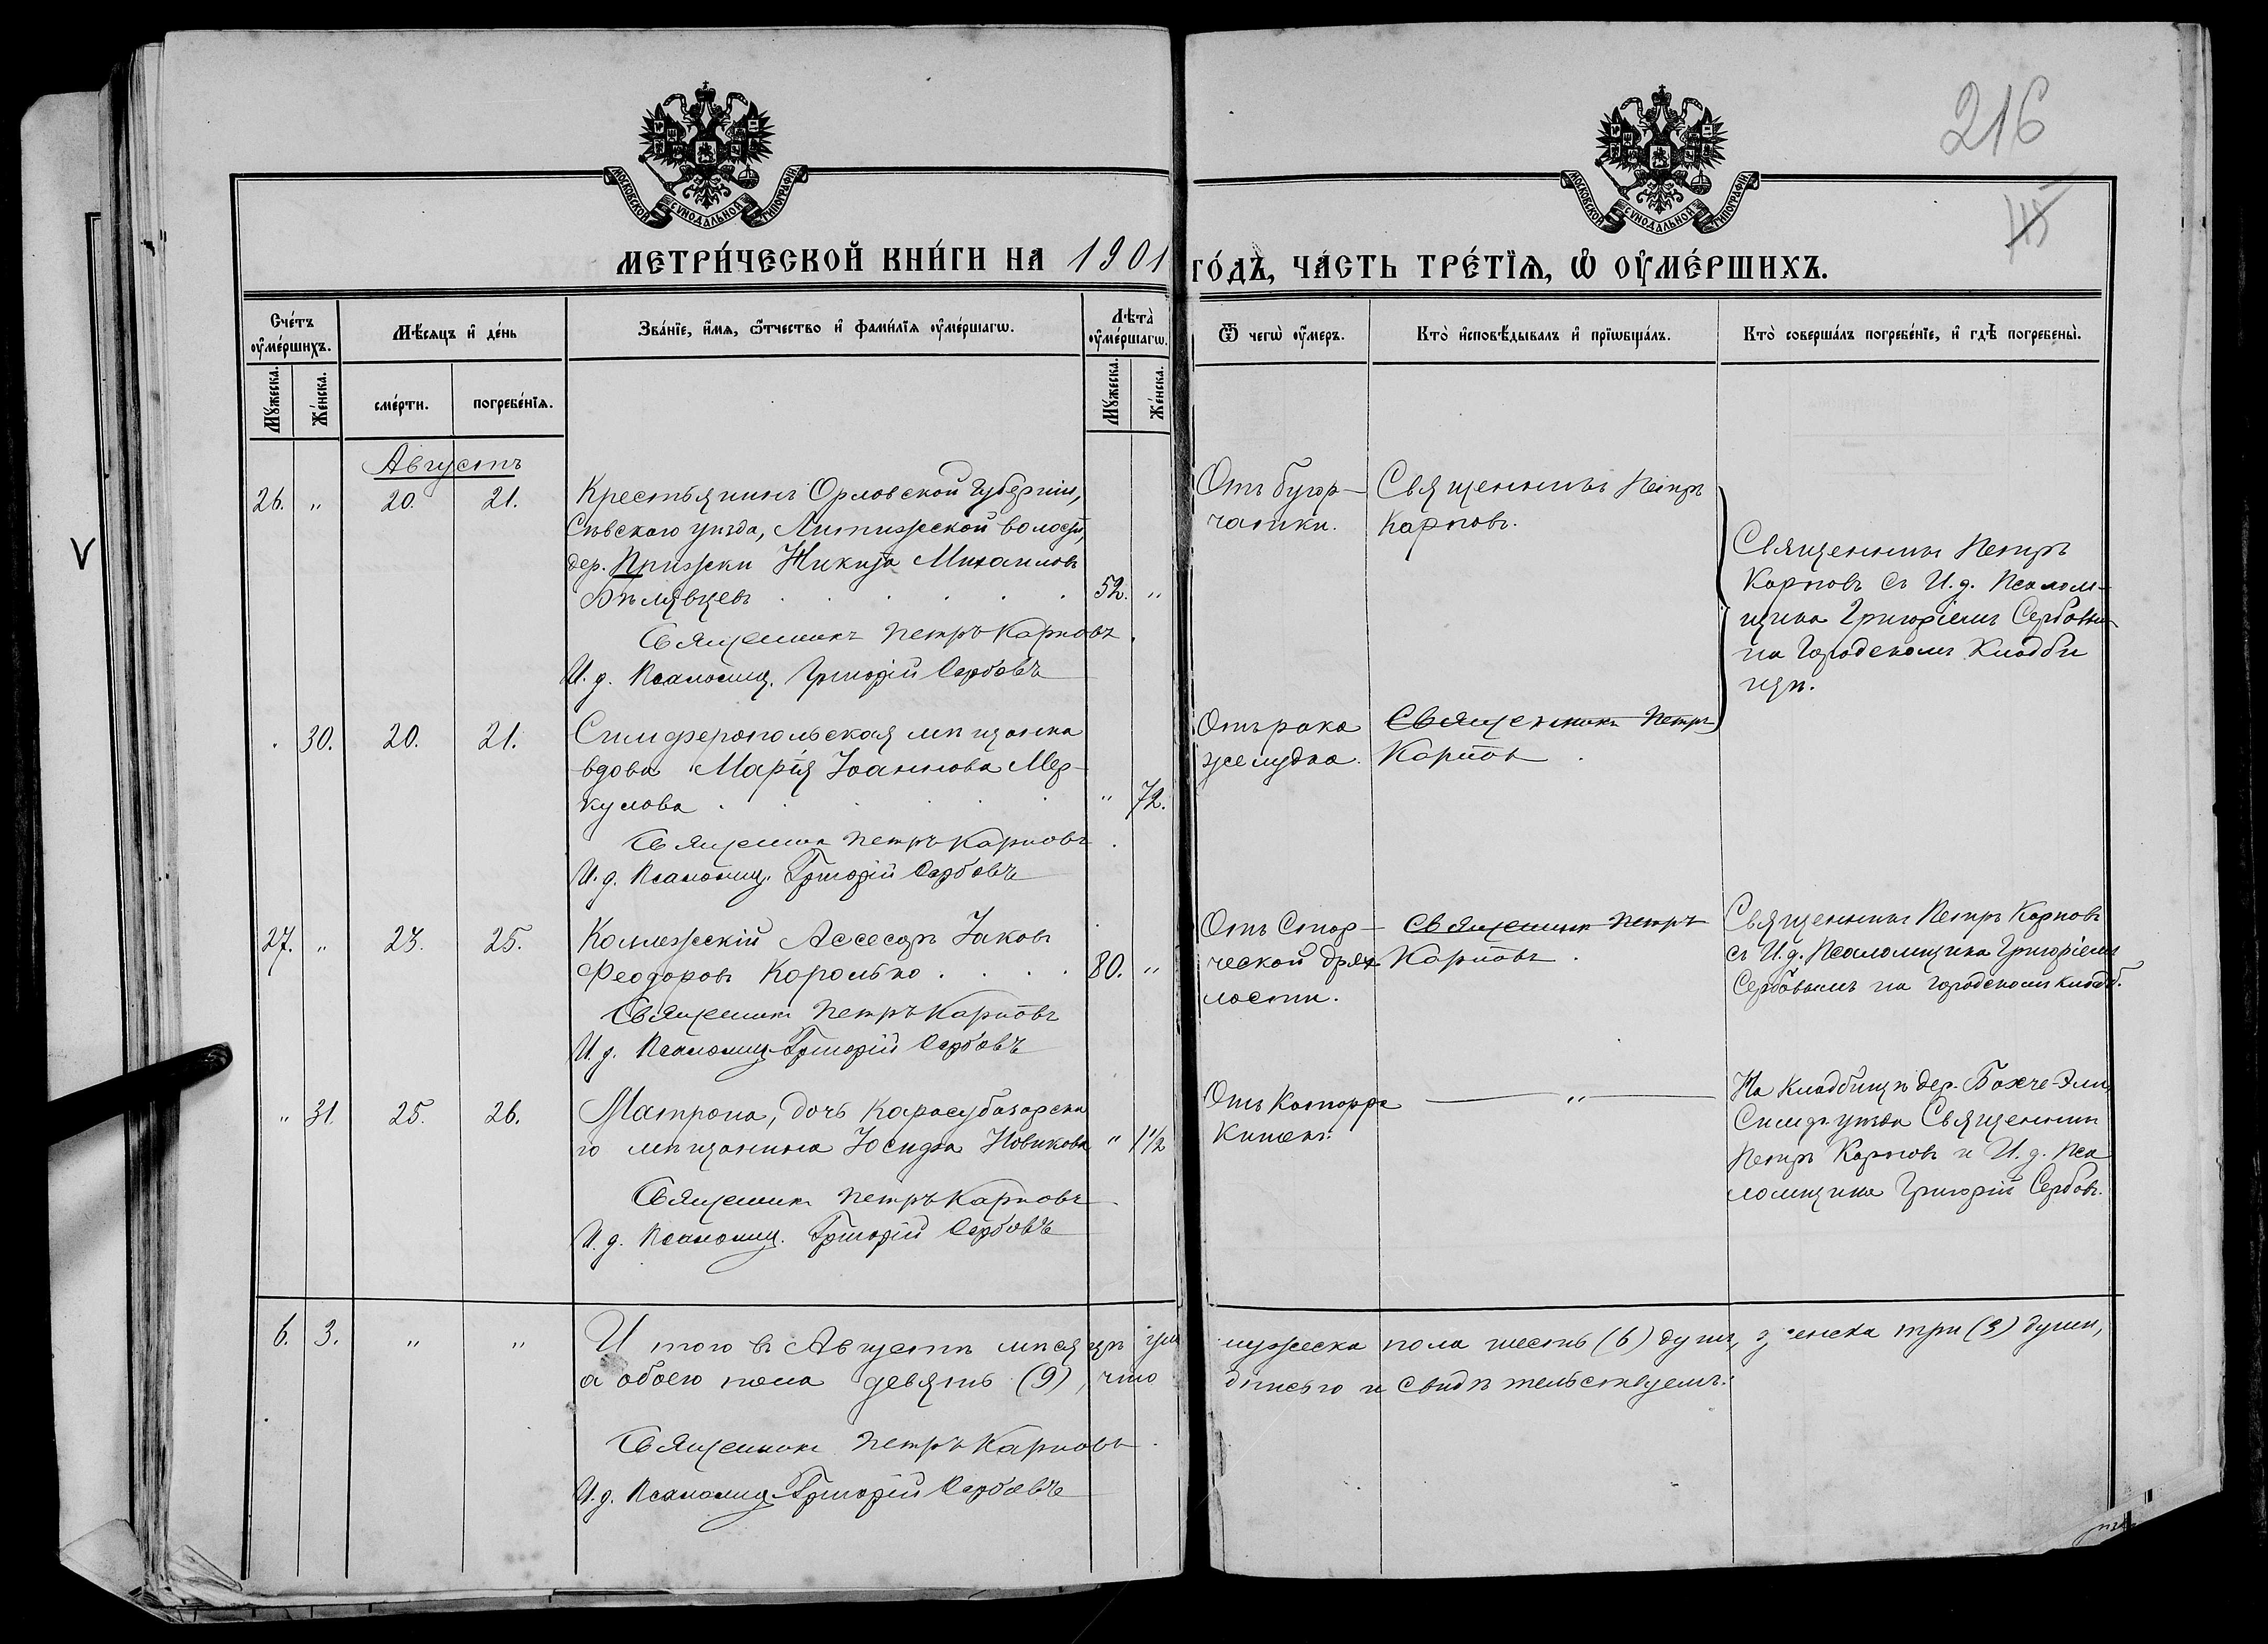 216
115
МОСКОВСКОЙ СУНОДАЛЬНОЙ ТИПОГРАФІИ
МОСКОВСКОЙ СУНОДАЛЬНОЙ ТИПОГРАФІИ
МЕТРИ́ЧЕСКОЙ КНИ́ГИ НА 1901 ГО́ДЪ, ЧА́СТЬ ТРЕ́ТІѦ, Ѡ҆ ОУ҆МЕ́РШИХЪ.
Сче́тъ оу҆ме́ршихъ.
Мѣ́сяцъ и҆ де́нь
Зва́ніе, и҆́мѧ, ѻ҆́тчество и҆ фами́лїѧ оу҆ме́ршагѡ.
Лѣта̀ оу҆ме́ршагѡ.
Ѿ чегѡ̀ оу҆́меръ.
Кто̀ и҆сповѣ́дывалъ и҆ прїѡбща́лъ.
Кто̀ соверша́лъ погребе́нїе, и҆ гдѣ̀ погребены̀.
Му́жеска.
Же́нска.
сме́рти.
погребе́нїѧ.
Му́жеска.
Же́нска.
Августъ
26. " 20. 21.
Крестьянинъ Орловской Губерніи,
Сѣвскаго уѣзда, Литижской волости,
дер. Прилѣпки Никита Михаиловъ
Бѣлявцевъ . . . . . . 52. "
Священникъ Петръ Карповъ.
И. д. Псаломщ. Григорій Сербовъ
Отъ бугор-
чатки.
Священникъ Петръ
Карповъ.
Священникъ Петръ
Карповъ съ И. д. Псалом-
щика Григоріемъ Сербовым
на Городскомъ Кладби
щѣ.
. 30. 20. 21.
Симферопольская мѣщанка
вдова Марія Іоаннова Мер-
кулова . . . . . " 72.
Священник Петръ Карповъ.
И. д. Псаломщ. Григорій Сербовъ
Отъ рака
желудка.
Священникъ Петръ
Карповъ.
27. " 23. 25.
Коллежскій Ассесоръ Іаковъ
Феодоровъ Королько . . . . 80. "
Священникъ Петръ Карповъ
И. д. Псаломщ. Григорій Сербовъ
Отъ Стар-
ческой дрях
лости.
Священникъ Петръ
Карповъ.
Священникъ Петръ Карповъ
съ И. д. Псаломщика Григоріемъ
Сербовымъ на городскомъ кладб.
" 31. 25. 26.
Матрона, дочь Карасубазарска
го мѣщанина Іосифа Новикова " 1 1/2
Священникъ Петръ Карповъ.
И. д. Псаломщ. Григорій Сербовъ
Отъ Катарра
Кишекъ.
"
На Кладбищѣ дер. Бахче-Эли,
Симф. уѣзда Священникъ
Петръ Карповъ и И. д. Пса
ломщика Григорій Сербовъ.
6. 3. " "
Итого въ Августѣ мѣсяцѣ ум мужеска пола шесть (6) душъ, женска три (3) души,
а обоего пола девять (9), что
и свидѣтельствуемъ.
Священникъ Петръ Карповъ.
И. д. Псаломщ. Григорій Сербовъ